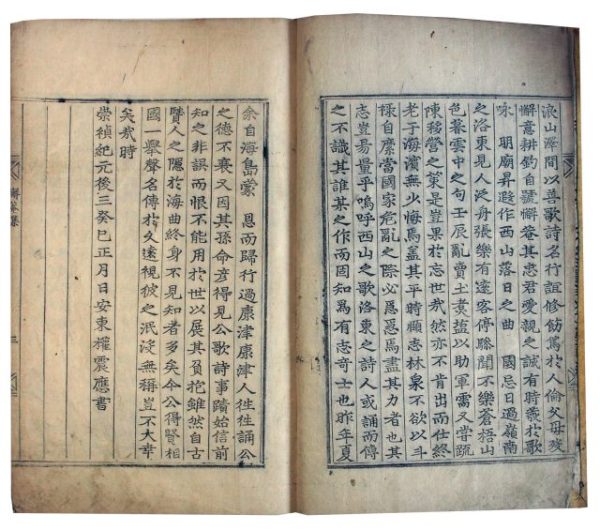 浪山澤間以善歌詩名行誼修飭篤於人倫父母歿
懈意耕釣自號懈菴其忠君愛親之誠有時發於歌
咏 明廟昇遐作西山落日之曲 國忌日過嶺南
之洛東見人泛舟張樂有逢客停驂聞不樂蒼梧山
色暮雲中之句壬辰亂賣土煑塩以助軍需又嘗疏
陳務營之策是豈果於忘世哉然亦不肯出而仕終
老于海濱無少悔焉盖其平時顧志林泉不欲以斗
祿自縻當國家危亂之際必思焉盡其力者也其
志豈易量乎嗚呼西山之歌洛東之詩人或誦而傳
之不識其誰某之作而固知爲有志奇士也昨年夏
余自海島蒙 恩而歸行過康津康津人徃徃誦公
之德不衰又因其孫命彦得見公歌詩事蹟始信前
知之非誤而恨不能用於世以展其負抱雖然自古
賢人之隱於海曲終身不見知者多矣今公得賢相
國一擧聲名傳於久遠視彼之泯沒無稱豈不大幸
矣哉時
崇禎紀元後三癸巳正月日安東權震應書